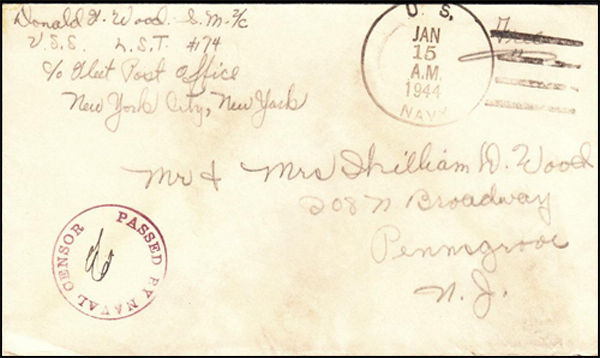 Donald H. Wood S.M. 2/c
U.S.S. L.S.T. #74
c/o Fleet Post Office
New York City, New York
U. S.
JAN
15
A.M.
1944
NAVY
Free
Mr & Mrs William D. Wood
208 N Broadway
Pennsgrove
N. J.
PASSED BY NAVAL CENSOR